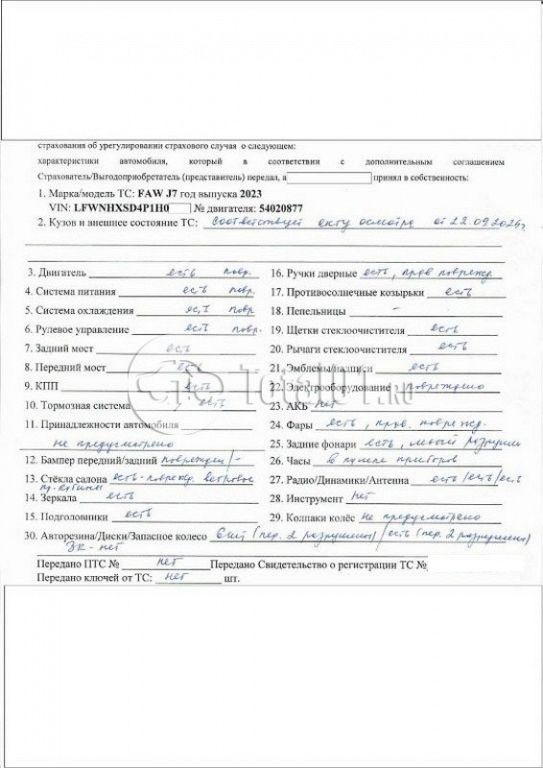 страхования об урегулировании страхового случая о следующем:
характеристики автомобиля, который в соответствии с дополнительным соглашением
Страхователь/Выгодоприобретатель (представитель) передал, а принял в собственность:
1. Марка/модель ТС: FAW J7 год выпуска 2023
VIN: LFWNHXSD4P1H0 № двигателя: 54020877
2. Кузов и внешнее состояние ТС: Соответствует акту осмотра от 22.09.2024г
3. Двигатель есть повр.
4. Система питания есть повр.
5. Система охлаждения есть повр
6. Рулевое управление есть повр.
7. Задний мост есть
8. Передний мост есть
9. КПП есть
10. Тормозная система есть
11. Принадлежности автомобиля
не предусмотрено
12. Бампер передний/задний поврежден/-
13. Стёкла салона есть - поврежд. ветровое
14. Зеркала есть
15. Подголовники есть
16. Ручки дверные есть, прав поврежд
17. Противосолнечные козырьки есть
18. Пепельницы -
19. Щетки стеклоочистителя есть
20. Рычаги стеклоочистителя есть
21. Эмблемы/надписи есть
22. Электрооборудование повреждено
23. АКБ нет
24. Фары есть, прав. поврежд.
25. Задние фонари есть, левый разрушен
26. Часы в пульте приборов
27. Радио/Динамики/Антенна есть/есть/есть
28. Инструмент нет
29. Колпаки колёс не предусмотрено
30. Авторезина/Диски/Запасное колесо 6шт (пер. 2 разрушены)/есть (пер. 2 разрушены)
ЗК - нет
Передано ПТС № нет Передано Свидетельство о регистрации ТС №
Передано ключей от ТС: нет шт.
TotalOT.RU